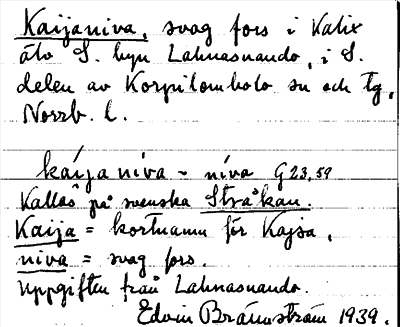 Kaijaniva, svag fors i Kalix
älv S. byn Lahnasuando, i S.
delen av Korpilombolo sn och tg,
Norrb. l.
káija níva - níva G 23,59
Kallas på svenska Stråkan.
Kaija = kortnamn för Kajsa.
niva = svag fors.
Uppgiften från Lahnasuando.
Edvin Brännström 1939.